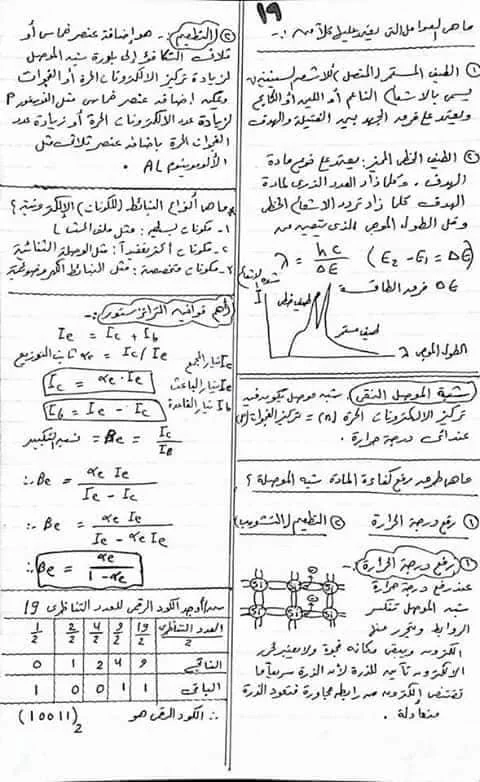 ١٩
ما هي العوامل التي يعتمد عليها كلاً من :-
① الطيف المستمر المتصل
يسمى بالاشعاع الناعم أو اللين أو الكابح
ويعتمد على فرق الجهد بين الفتيلة والهدف
② الطيف الخطي المميز: يعتمد على نوع مادة
الهدف . وكلما زاد العدد الذري لمادة
الهدف كلما زاد تردد الاشعاع الخطي
وقل الطول الموجي
λ = hc / ΔE (E₂ - E₁ = ΔE)
ΔE فرق الطاقة
شدة الاشعاع
I
طيف خطي
طيف مستمر
λ الطول الموجي
شبه الموصل النقي . شبه موصل يكون فيه
تركيز الالكترونات الحرة (n) = تركيز الفجوات (P)
عند أي درجة حرارة .
ما هي طرق رفع كفاءة المادة شبه الموصلة ؟
① رفع درجة الحرارة ② التطعيم (التشويب)
① رفع درجة الحرارة :-
عند رفع درجة حرارة
شبه الموصل تنكسر
الروابط ويتحرر منها
الكترون ويبقى مكانه فجوة ولا يعتبر تحرر
الالكترون تأين للذرة لأن الذرة سرعان ما
تقتنص الكترون من رابطة مجاورة فتعود الذرة
متعادلة .
Si Si Si
Si Si Si
② التطعيم :- هو إضافة عنصر خماسي أو
ثلاثي التكافؤ إلى بلورة شبه الموصل
لزيادة تركيز الالكترونات الحرة أو الفجوات
ويمكن إضافة عنصر خماسي مثل الفوسفور P
لزيادة عدد الالكترونات الحرة أو زيادة عدد
الفجوات الحرة بإضافة عنصر ثلاثي مثل
الألومونيوم AL .
* ما هي أنواع النبائط (المكونات) الإلكترونية ؟
١- مكونات بسيطة : مثل ملف الحث L
٢- مكونات أكثر تعقيداً : مثل الوصلة الثنائية
٣- مكونات متخصصة : مثل النبائط الكهروضوئية
أهم قوانين الترانزستور :-
Ie = Ic + Ib
Ic تيار المجمع
αe = Ic / Ie ثابت التوزيع
Ie تيار الباعث
Ic = αe . Ie
Ib تيار القاعدة
Ib = Ie - Ic
نسبة التكبير = Βe = Ic / IB
∴ Βe = αe Ie / Ie - Ic
∴ Βe = αe Ie / Ie - αe Ie
∴ Βe = αe / 1 - αe
أوجد الكود الرقمي للعدد التناظري 19
العدد التناظري / 2 19/2 9/2 4/2 2/2 1/2
الناتج 9 4 2 1 0
الباقي 1 1 0 0 1
∴ الكود الرقمي هو (10011)₂